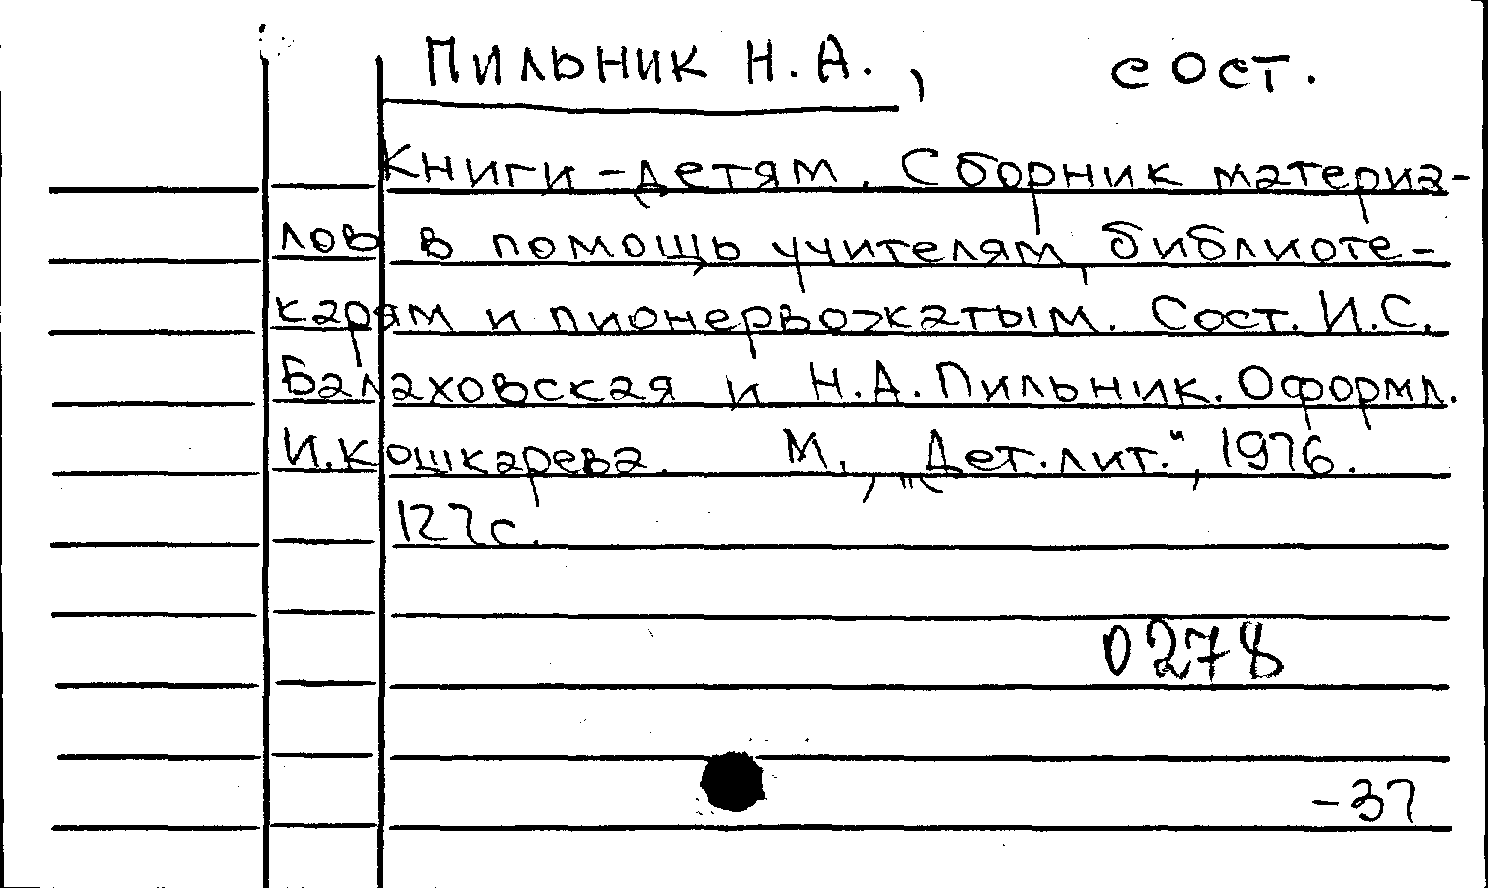 Пильник Н.А., сост.
Книги-детям. Сборник материа-
лов в помощь учителям, библиоте-
карям и пионервожатым. Сост. И.С.
Балаховская и Н.А. Пильник. Оформл.
И. Кошкарева. М., „Дет. лит.", 1976.
127с.
0278
-37